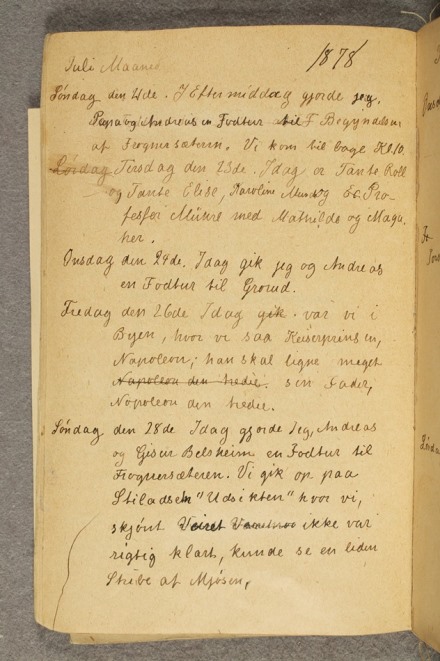 Juli Maaned 1878
Søndag den 21de. I Eftermiddag gjorde jeg,
Papa og Andreas en Fodtur til Begyndelsen
af Frognersæteren. Vi kom tilbage Kl 10.
Lørdag Tirsdag den 23de. Idag er Tante Roll
og Tante Elise, Karoline og Pro-
fessor med Mathilde og Maga
her.
Onsdag den 24de. Idag gik jeg og Andreas
en Fodtur til Grorud.
Fredag den 26de Idag gik var vi i
Byen, hvor vi saa Keiserprinsen,
Napoleon; han skal ligne meget
Napoleon den tredie. sin Fader,
Napoleon den tredie.
Søndag den 28de Idag gjorde Jeg, Andreas
og Gisur Belsheim en Fodtur til
Frognersæteren. Vi gik op paa
Stiladsen "Udsikten" hvor vi,
skjønt Veiret ikke var
rigtig klart, kunde se en liden
Stribe af Mjøsen.